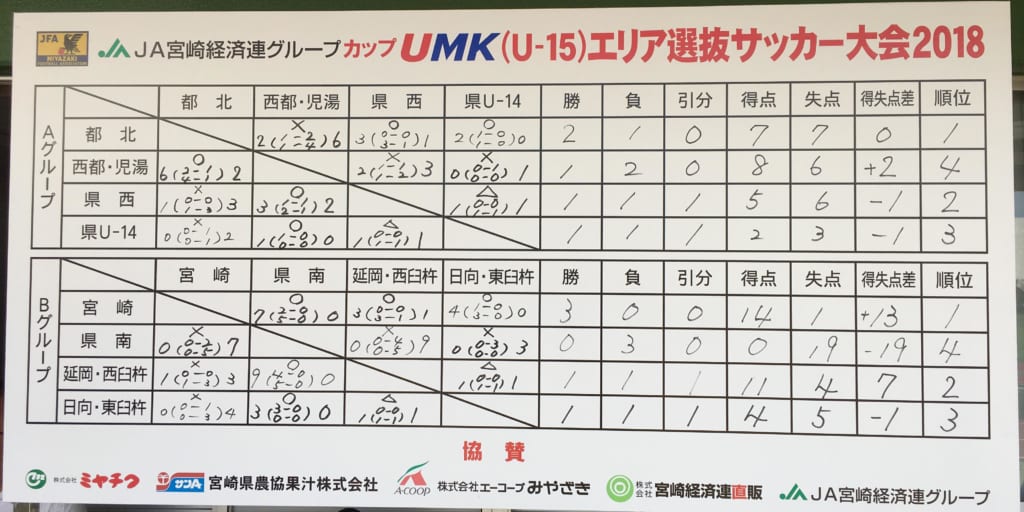 JFA MIYAZAKI FOOTBALL ASSOCIATION JA宮崎経済連グループ カップ UMK (U-15)エリア選抜サッカー大会2018
Aグループ 都北 西都・児湯 県西 県U-14 勝 負 引分 得点 失点 得失点差 順位
都北 × 2(1-2 1-4)6 ○ 3(0-0 3-1)1 ○ 2(1-0 1-0)0 2 1 0 7 7 0 1
西都・児湯 ○ 6(2-1 4-1)2 × 2(1-1 1-2)3 × 0(0-1 0-0)1 1 2 0 8 6 +2 4
県西 × 1(0-0 1-3)3 ○ 3(1-1 2-1)2 △ 1(0-0 1-1)1 1 1 1 5 6 -1 2
県U-14 × 0(0-1 0-1)2 ○ 1(1-0 0-0)0 △ 1(0-0 1-1)1 1 1 1 2 3 -1 3
Bグループ 宮崎 県南 延岡・西臼杵 日向・東臼杵 勝 負 引分 得点 失点 得失点差 順位
宮崎 ○ 7(2-0 5-0)0 ○ 3(0-0 3-1)1 ○ 4(1-0 3-0)0 3 0 0 14 1 +13 1
県南 × 0(0-2 0-5)7 × 0(0-4 0-5)9 × 0(0-3 0-0)3 0 3 0 0 19 -19 4
延岡・西臼杵 × 1(0-0 1-3)3 ○ 9(4-0 5-0)0 △ 1(0-0 1-1)1 1 1 1 11 4 7 2
日向・東臼杵 × 0(0-1 0-3)4 ○ 3(3-0 0-0)0 △ 1(0-0 1-1)1 1 1 1 4 5 -1 3
協賛
株式会社 ミヤチク サンA 宮崎県農協果汁株式会社 A-COOP 株式会社エーコープみやざき 株式会社 宮崎経済連直販 JA宮崎経済連グループ